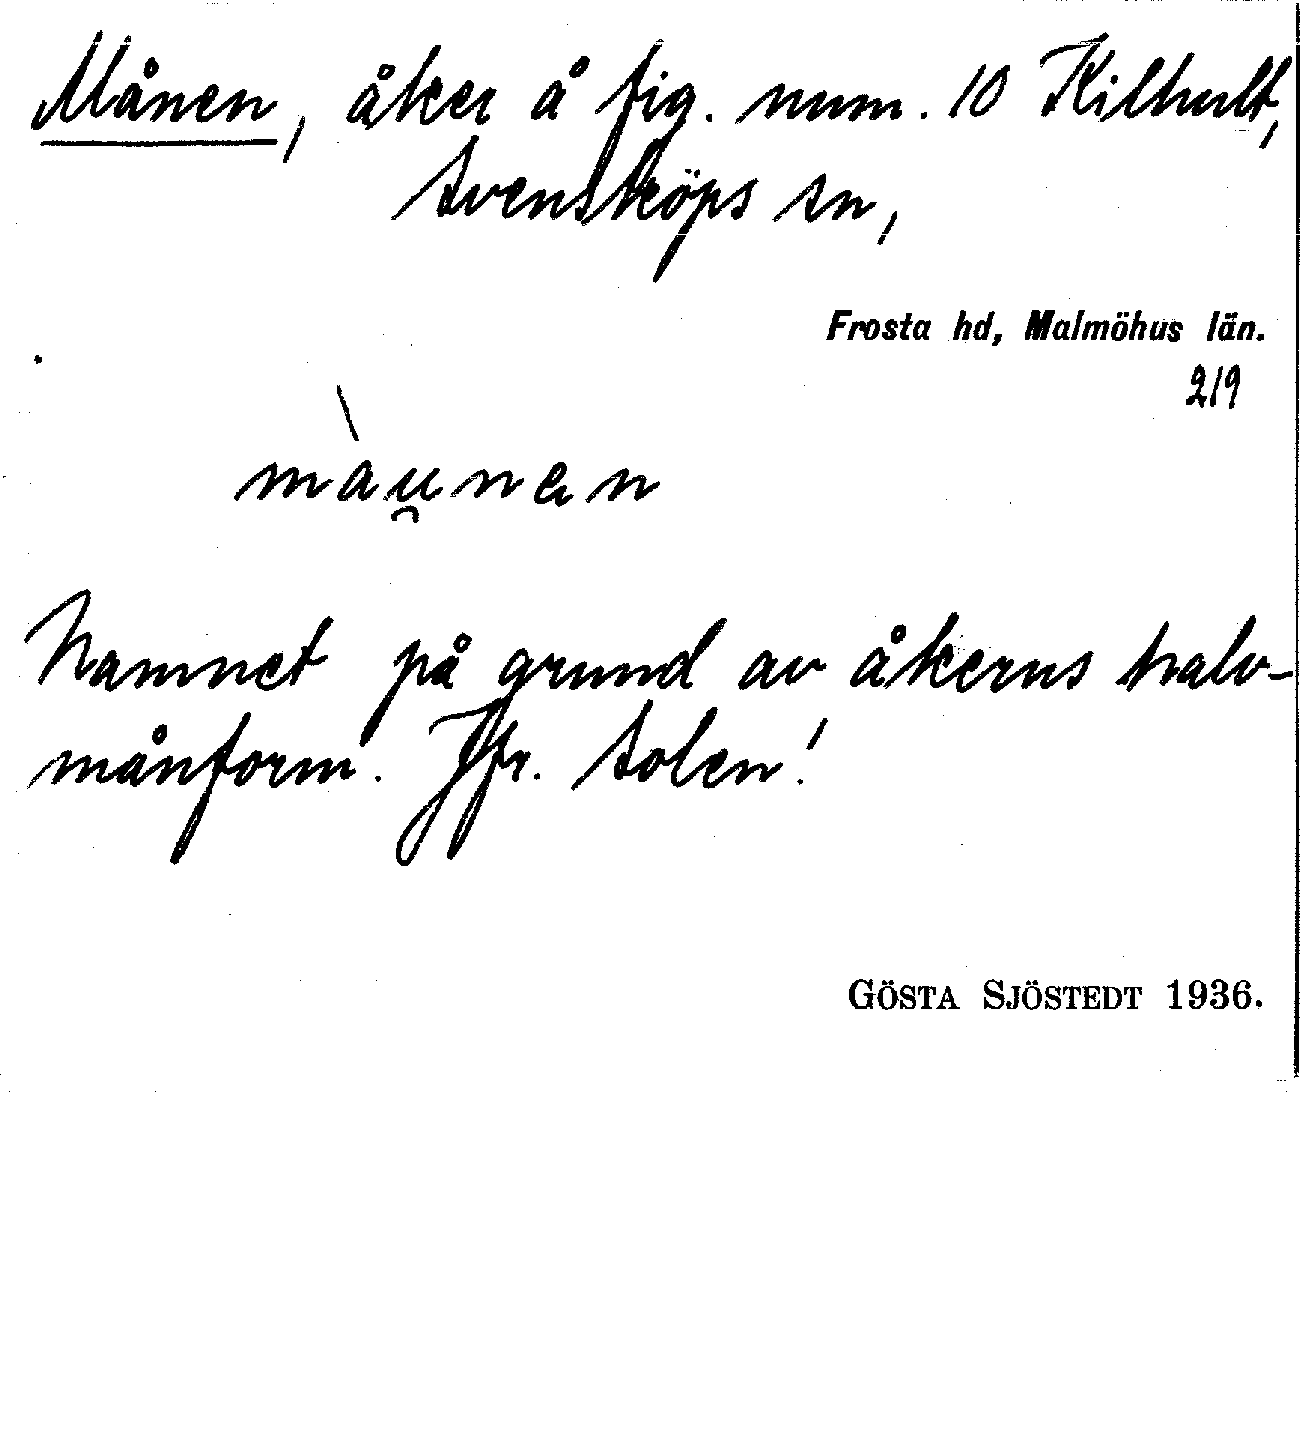 Månen, åker å fig. num. 10 Kilhult,
Svensköps sn,
Frosta hd, Malmöhus län.
219
màu̯nən
Namnet på grund av åkerns halv-
månform. Jfr. Solen!
GÖSTA SJÖSTEDT 1936.